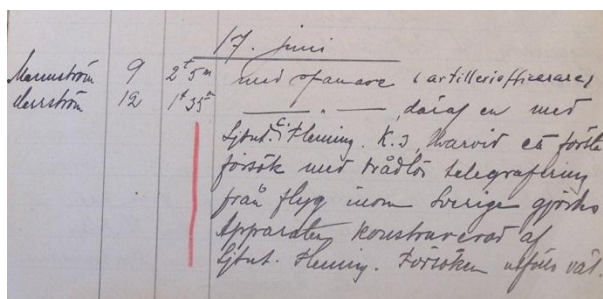 17. juni
Mannström 9 2t 5m med spanare (artilleriofficerare)
Herrström 12 1t 35m — " — , däraf en med
Löjtnt. C. Fleming. K.3, hvarvid ett första
försök med trådlös telegrafering
från flyg inom Sverige gjordes
Apparaten konstruerad af
Löjtnt. Fleming. Försöken utföllo väl.